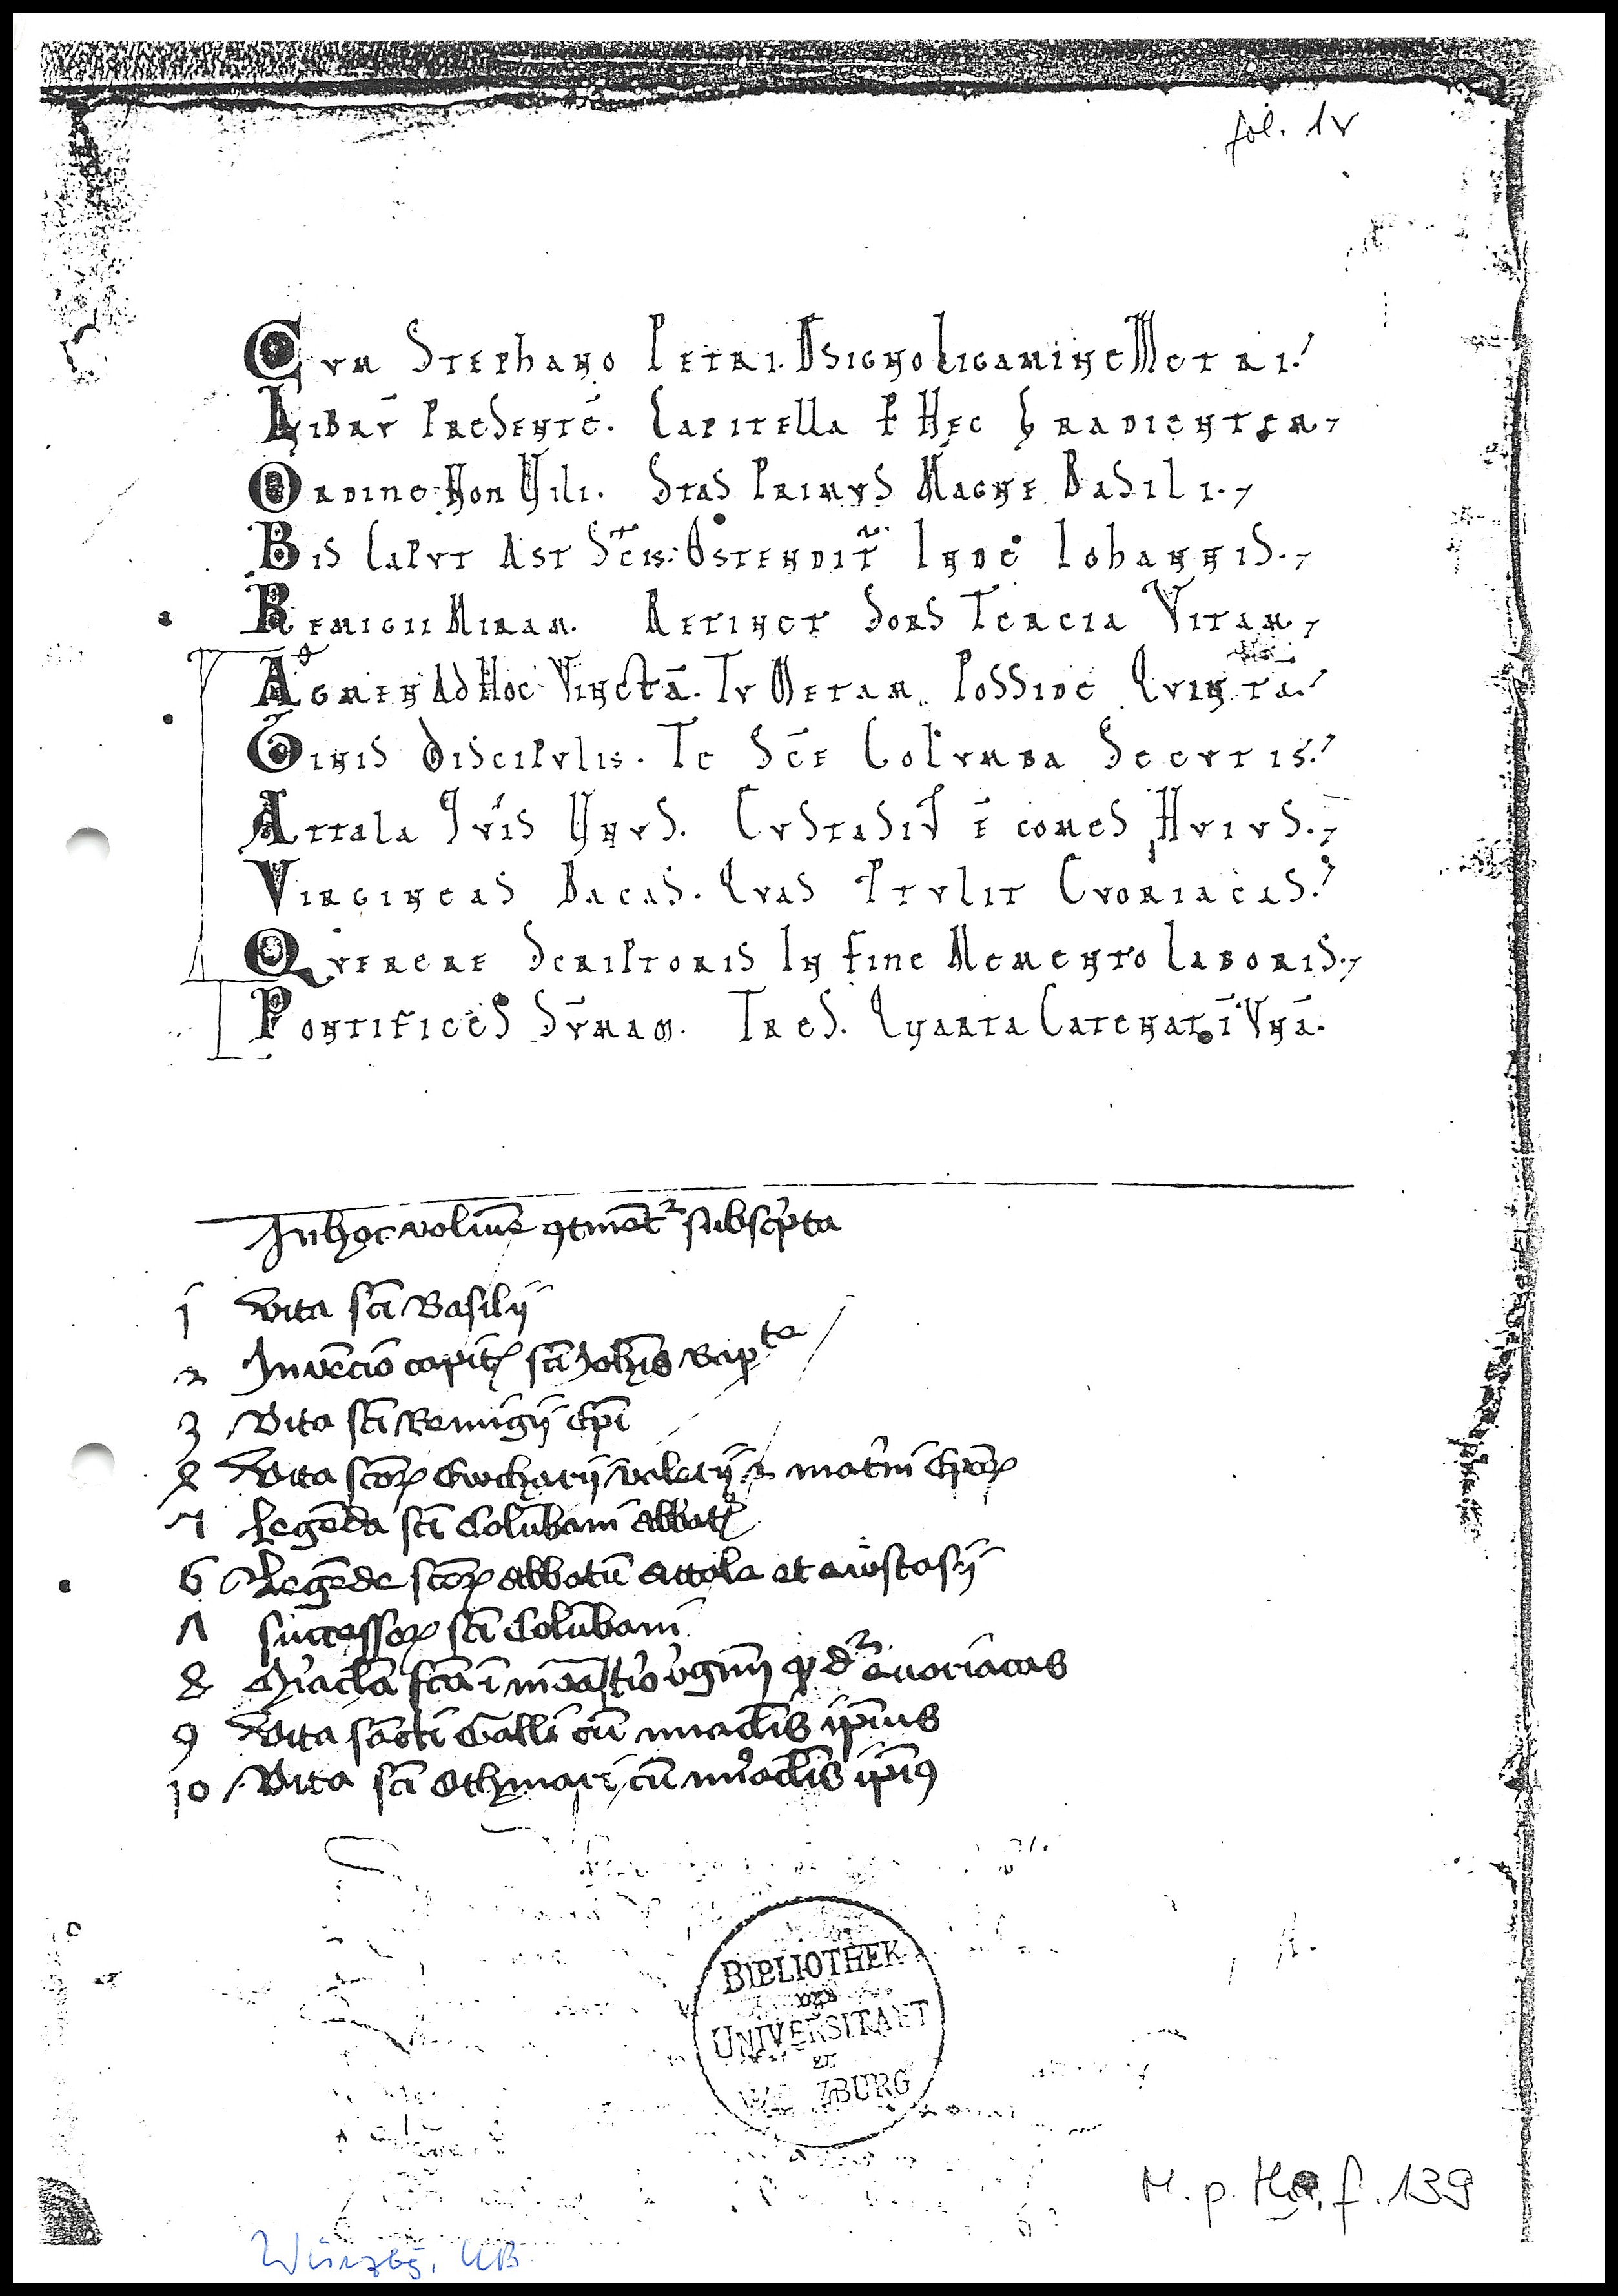 fol. 1v
Cum Stephano Petri. Designo ligamine Metri.
Librū Presentē. Capitella P Hec Gradienter.
Ordine Non Vili. Stas Primus Magne Basili.
Bis Caput Ast Scīs. Ostendit̃ Inde Iohannis.
Remigii Miram. Retinet Sors Tercia Vitam,
Agmen Ad Hoc Vinctā. Tu Metam Posside Quintā.
Tinis Discipulis. Te Scē Columba Secutis.
Attala Quis Unus. Custasiꝰ ē comes Huius.
Virgineas Bacas. Quas Ptulit Evoriacas.
Querere Scriptoris In fine Memento Laboris.
Pontifices Sūmam. Tres. Quarta Catenat ī Unā.
In hoc volumē ꝯtinēt² subscpta
1 Vita scī Basilij
2 Invēcio capitꝭ scī Johīs Bapᵗᵉ
3 Vita scī Remigij Epī
4 Vita scōꝝ Eucharij valerij ⁊ mat'ni Epōꝝ
5 Legēda scī Colūbani abbatꝭ
6 Legēde scōꝝ abbatū attale et eustasij
7 successoꝝ scī Colūbani
8 Mi'acla fcā ī monast'io v'ginū q̄ dr̄ evoriacas
9 Vita sācti Galli cū miraclīs ipīus
10 Vita scī Othmari cū mi'aclīs ipīꝰ
BIBLIOTHEK
DER
UNIVERSITAET
ZU
WÜRZBURG
M. p. th. f. 139
Würzbg, UB